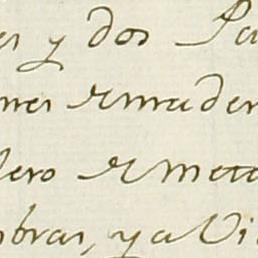 es y dos Pa
nes de mader
lero de meta
mbras, y a Vi